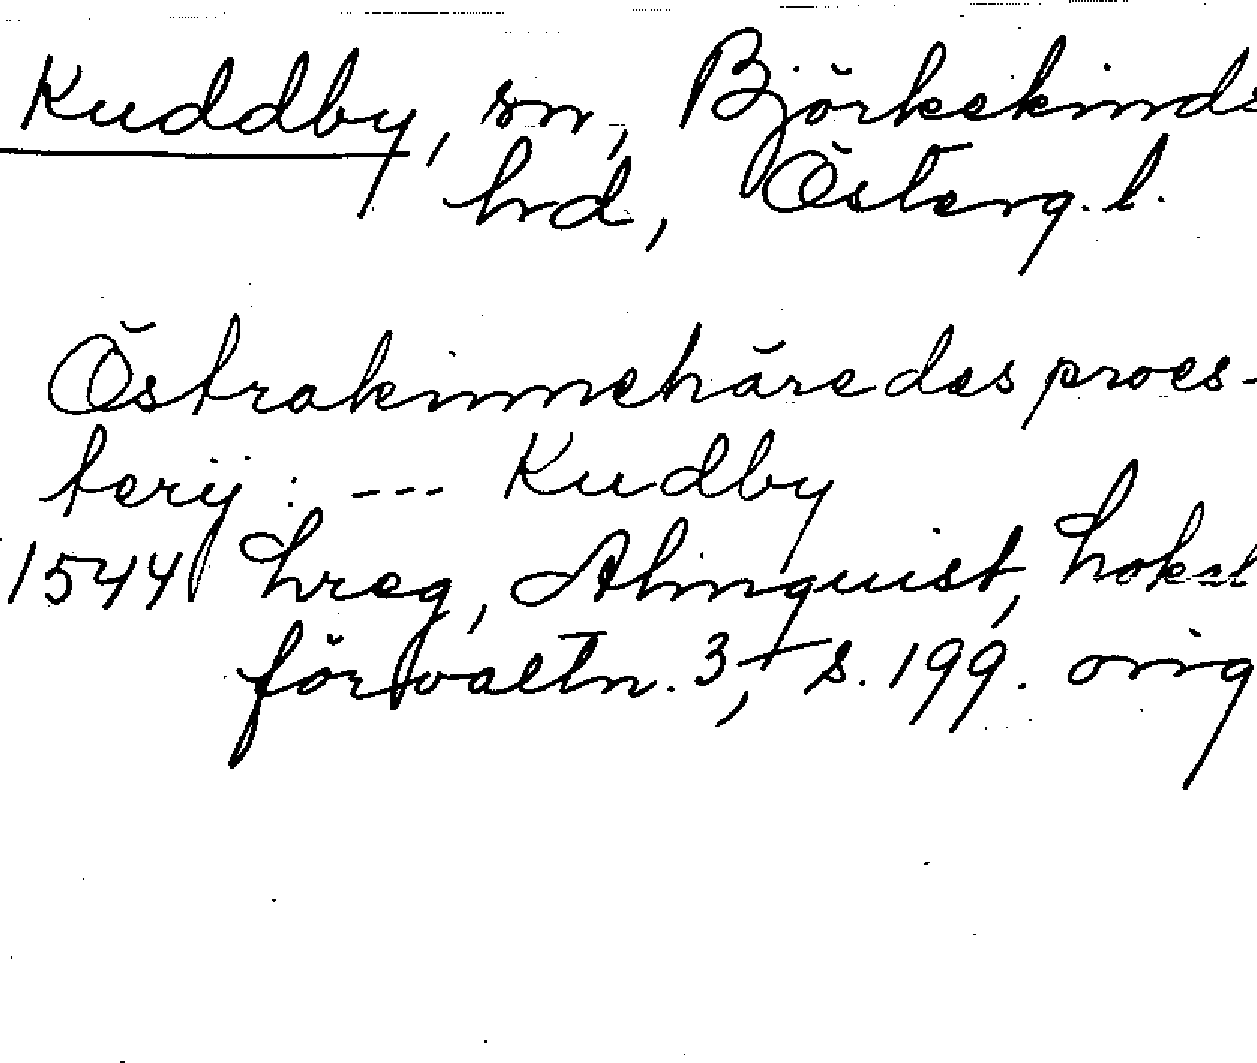 Kuddby, sn, Björkekinds
hd, Österg. l.
Östrakinnehäredes proes-
terij : --- Kudby
1544 hreg, Almquist, Lokal
förvaltn. 3, s. 199. orig